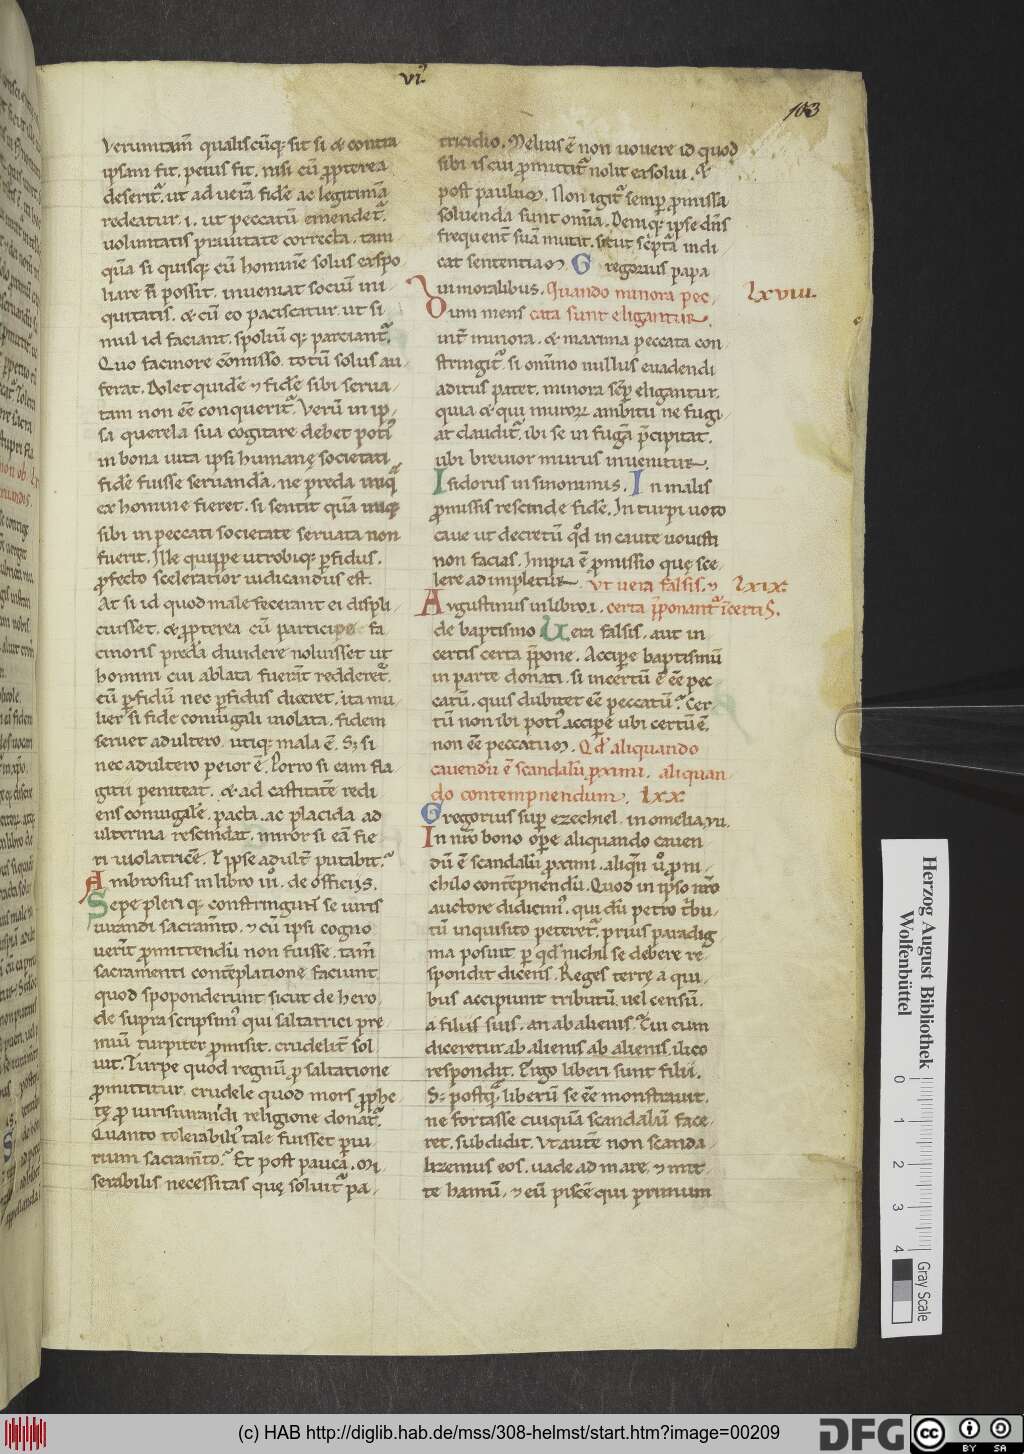 vi
103
Verumtam̄ qualiscūq; sit si & contra
ipsam fit. peius fit. nisi cū ꝓpterea
deserit̄. ut ad uerā fidē ac legitimā
redeatur .i. ut peccatū emendet̄.
uoluntatis prauitate correcta. tam
quā si quisq; cū homine solus exspo
liare n̄ possit. inueniat sociū ini
quitatis. & cū eo paciscatur. ut si
mul id faciant. spoliū q; parciant̄.
Quo facinore cōmisso. totū solus au
ferat. Dolet quidē ⁊ fidē sibi serua
tam non eē conquerit̄. Verū in ip
sa querela sua cogitare debet poti᷒
in bona uita ipsi humanę societati
fidē fuisse seruandā. ne preda iniq̄
ex homine fieret. si sentit quā iniq;
sibi in peccati societate seruata non
fuerit. Ille quippe utrobiq; ꝑfidus.
ꝓfecto sceleratior iudicandus est.
At si id quod male fecerant ei displi
cuisset. & ꝓpterea cū participe fa
cinoris predā diuidere noluisset ut
homini cui ablata fuerāt redderet̄.
eū ꝑfidū nec ꝑfidus diceret. ita mu
lier si fide coniugali uiolata. fidem
seruet adultero. utiq; mala ē. S; si
nec adultero peior ē. Porro si eam fla
gitii peniteat. & ad castitatē redi
ens coniugalē. pacta. ac placida ad
ulterina rescindat. miror si eā fie
ri uiolatricē. ł ipse adult̄ putabit.
Ambrosius in libro iii. de officiis.
Sepe pleri q; constringunt se iuris
iurandi sacram̄to. ⁊ cū ipsi cogno
uerīt ꝓmittendū non fuisse. tam̄
sacramenti contēplatione faciunt
quod spoponderunt sicut de hero
de supra scripsim᷒ qui saltatrici pre
miū turpiter ꝓmisit. crudelit̄ sol
uit. Turpe quod regnū ꝓ saltatione
ꝓmittitur. crudele quod mors ꝓphe
tę ꝓ iurisiurandi religione donat̄.
Quanto tolerabili᷒ tale fuisset ꝑiu
rium sacram̄to. Et post pauca. Mi
serabilis necessitas quę soluit̄ pa
tricidio. Melius ē non uouere id quod
sibi is cui ꝓmittit̄ nolit exsolui. &
post paululū. Non igit̄ semꝑ ꝓmissa
soluenda sunt omīa. Deniq; ipse dn̄s
frequent̄ suā mutat. sicut sc̄ptā indi
cat sententiam. Gregorius papa
in moralibus. Quando minora pec lxviii.
Dum mens cata sunt eligantur.
int̄ minora. & maxima peccata con
stringit̄. si omīno nullus euadendi
aditus patet. minora sēp eligantur.
quia & qui muroꝝ ambitu ne fugi
at claudit̄. ibi se in fugā p̄cipitat.
ubi breuior murus inuenitur.
Isidorus in sinonimis. In malis
ꝓmissis rescinde fidē. In turpi uoto
caue ut decretū qd̄ in caute uouisti
non facias. Impia ē ꝓmissio quę sce
lere adimpletur. Vt uera falsis. ⁊ lxix.
Augustinus in libro .i. certa p̄ponant̄ īcertis.
de baptismo Vera falsis. aut in
certis certa p̄pone. Accipe baptismū
in parte donati. si incertū ē eē pec
catū. quis dubitet eē peccatū. Cer
tū non ibi poti᷒ accipe ubi certū ē.
non eē peccatum. Qd̄ aliquando
cauendū ē scandalū ꝓximi. aliquan
do contempnendum. lxx
Gregorius sup ezechiel. in omelia .vii.
In nr̄o bono oꝑe aliquando cauen
dū ē scandalū ꝓximi. aliqn̄ u᷒ ꝓ ni
chilo contēpnendū. Quod in ipso nr̄o
auctore didicim᷒. qui dū petro tbu
tū inquisito peteret̄. prius paradig
ma posuit per qd̄ nichil se debere re
spondit dicens. Reges terrę a qui
bus accipiunt tributū. uel censū.
a filiis suis. an ab alienis. Cui cum
diceretur. ab alienis ab alienis. ilico
respondit. Ergo liberi sunt filii.
S; postq̄ liberū se eē monstrauit.
ne fortasse cuiquā scandalū face
ret. subdidit. Vt autē non scanda
lizemus eos. uade ad mare. ⁊ mit
te hamū. ⁊ eū piscē qui primum
Herzog August Bibliothek
Wolfenbüttel
0 1 2 3 4
Gray Scale
(c) HAB http://diglib.hab.de/mss/308-helmst/start.htm?image=00209
DFG
cc BY SA